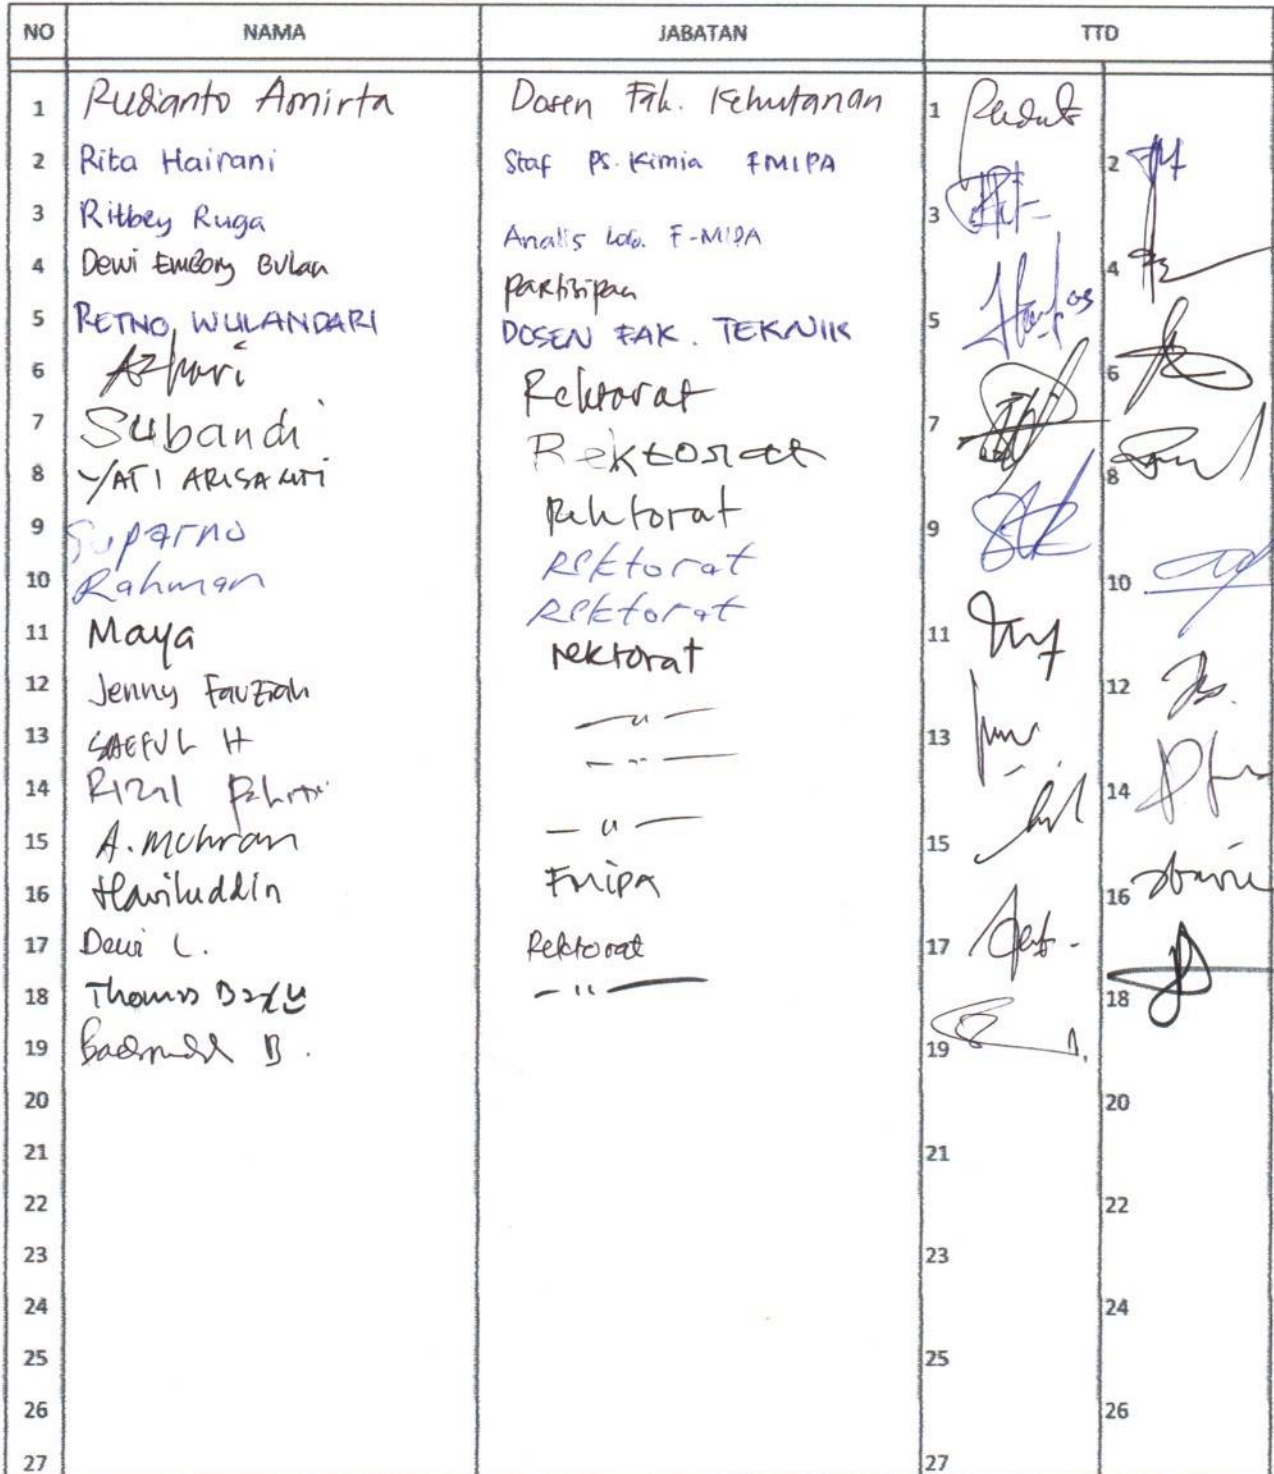 NO NAMA JABATAN TTD
1 Rudianto Amirta Dosen Fak. Kehutanan 1
2 Rita Hairani Staf PS. Kimia FMIPA 2
3 Ritbey Ruga Analis Lab. F-MIPA 3
4 Dewi Embong Bulan partisipan 4
5 RETNO WULANDARI DOSEN FAK. TEKNIK 5
6 Azhari Rektorat 6
7 Subandi Rektorat 7
8 YATI ARISANTI Rektorat 8
9 Suparno Rektorat 9
10 Rahman Rektorat 10
11 Maya rektorat 11
12 Jenny Fauziah — " — 12
13 SAEFUL H — " — 13
14 Rizal 14
15 A. Muhran — " — 15
16 Haviluddin FMIPA 16
17 Dewi L. Rektorat 17
18 Thomas — " — 18
19 B. 19
20 20
21 21
22 22
23 23
24 24
25 25
26 26
27 27